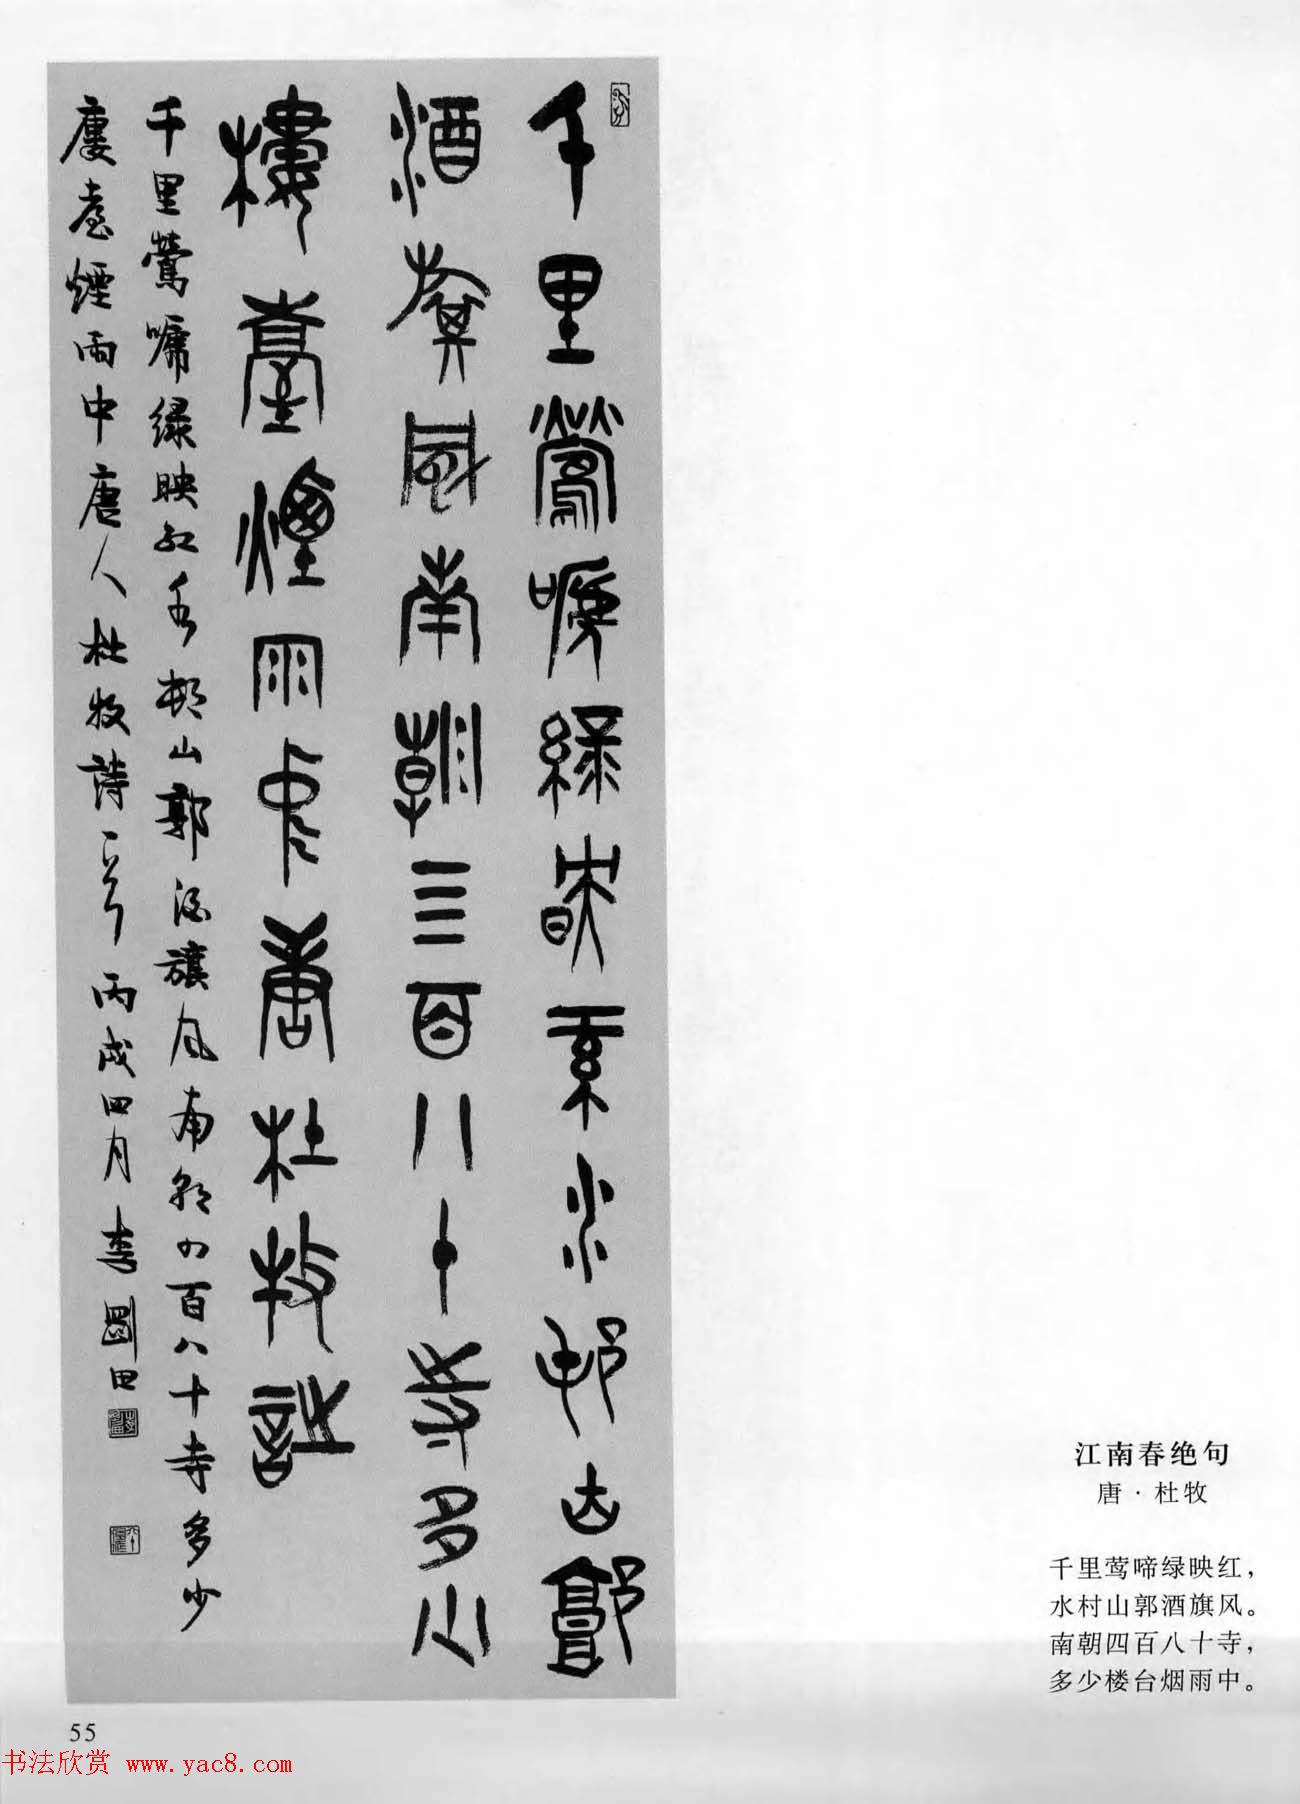 千里鶯嗁綠映紅水邨山郭
酒旗風南朝亖百八十寺多少
樓臺煙雨中唐杜牧詩
千里鶯嗁绿映红水邨山郭酒旗风南朝四百八十寺多少
廔臺煙雨中唐人杜牧詩一首丙戌四月李剛田
江南春绝句
唐·杜牧
千里莺啼绿映红，
水村山郭酒旗风。
南朝四百八十寺，
多少楼台烟雨中。
55
书法欣赏 www.yac8.com